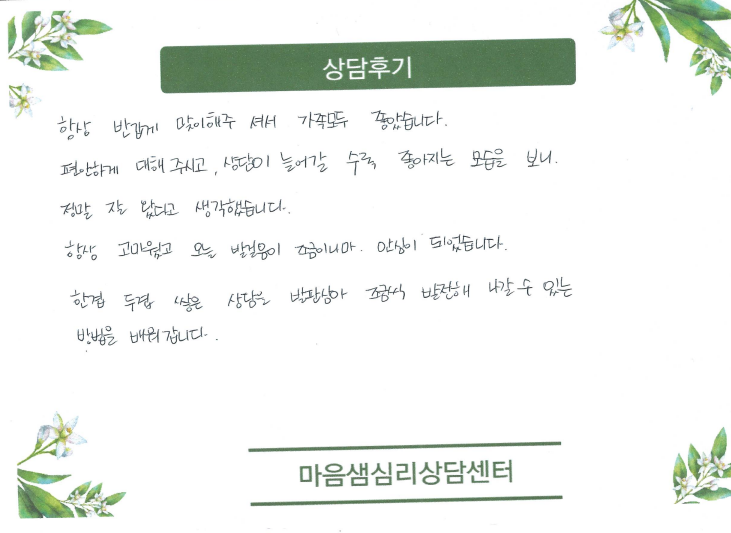 상담후기
항상 반갑게 맞이해주 셔서 가족모두 좋았습니다.
편안하게 대해 주시고, 상담이 늘어갈 수록 좋아지는 모습을 보니.
정말 잘 왔다고 생각했습니다.
항상 고마웠고 오늘 발걸음이 조금이나마. 안심이 되었습니다.
한겹 두겹 쌓은 상담을 발판삼아 조금씩 발전해 나갈 수 있는
방법을 배워 갑니다.
마음샘심리상담센터